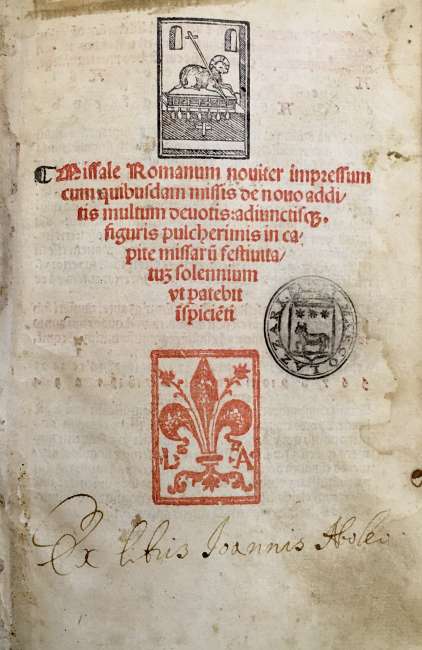 ¶ Missale Romanum noviter impressum
cum quibusdam missis de novo addi/
tis multum devotis: adiunctisqꝫ.
figuris pulcherimis in ca/
pite missarū festivita/
tuꝫ solennium
vt patebit
īspiciēti
L A
Ex libris Joannis